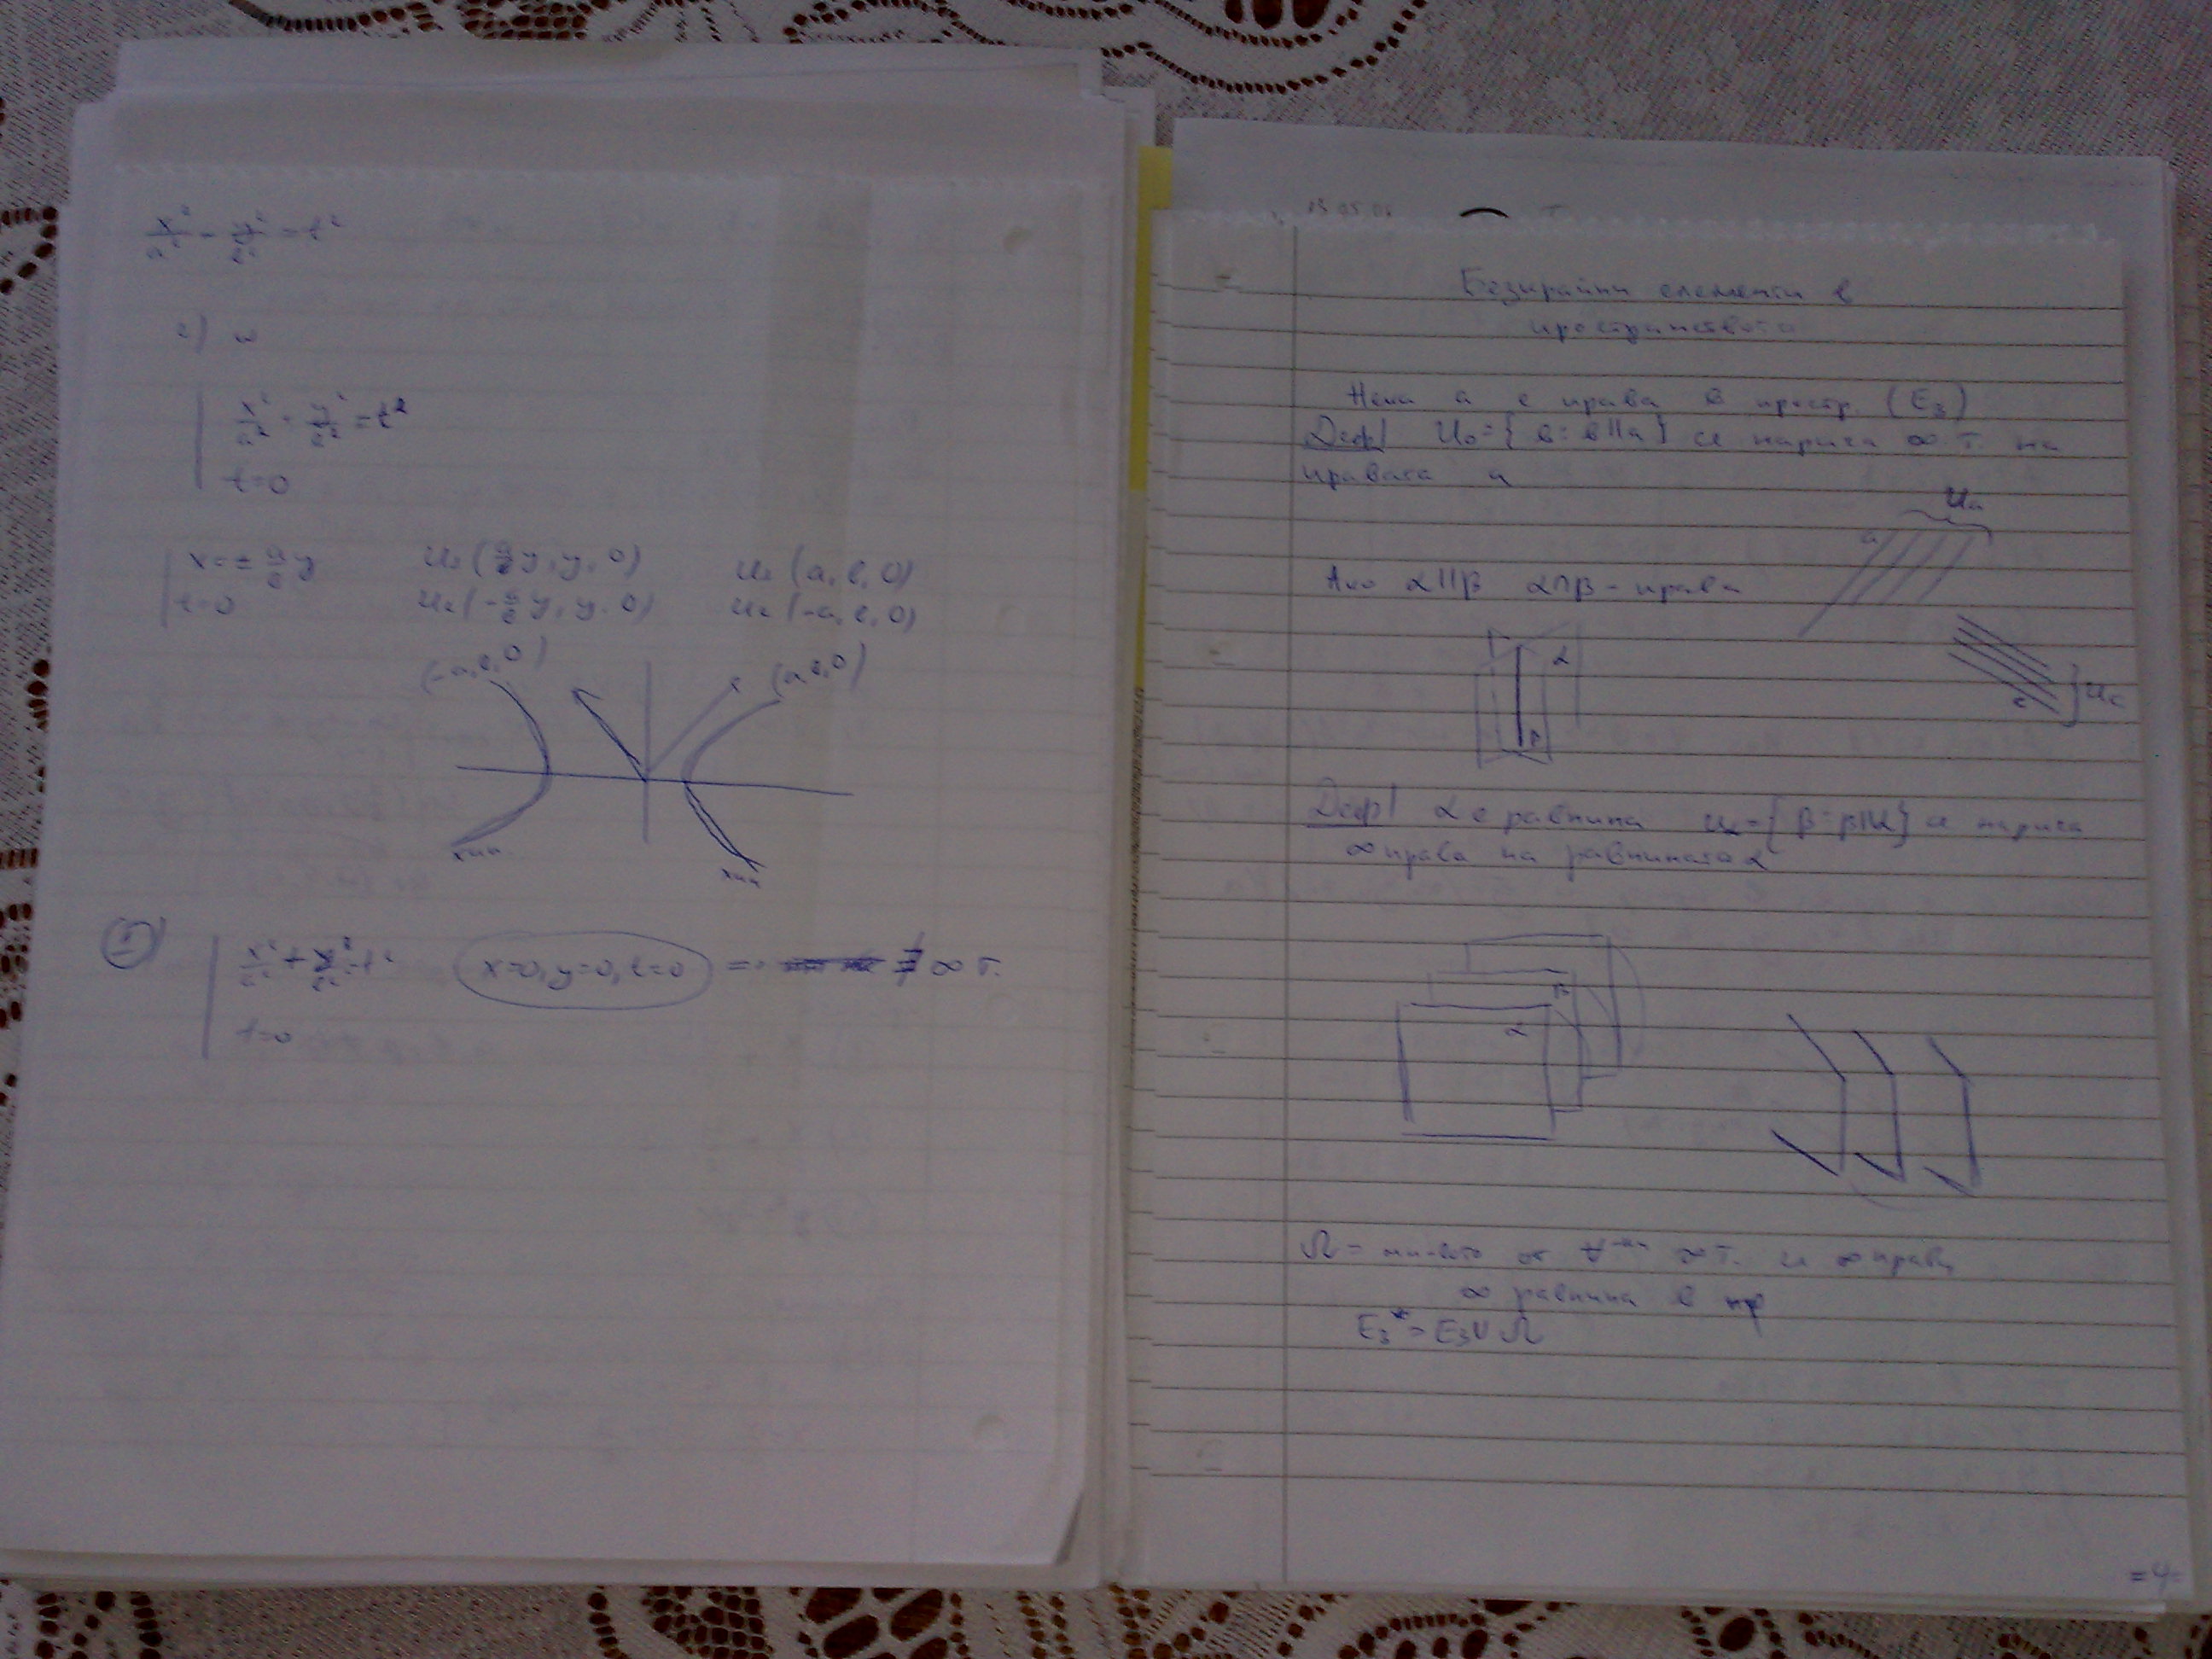 x²/a² - y²/b² = t²
2) ω
x²/a² - y²/b² = t²
t=0
x = ± a/b y
t=0
U₁ (a/b y, y, 0)
U₂ (-a/b y, y, 0)
U₁ (a, b, 0)
U₂ (-a, b, 0)
(-a, b, 0)
(a, b, 0)
хип.
хип
x²/a² + y²/b² = t²
x=0, y=0, t=0
∄ ∞ т.
t=0
Безкрайни елементи в
пространството
Нека a е права в простр. (E₃)
Деф| Ua = { b: b||a } се нарича ∞ т. на
правата a
Ua
a
Ако α∦β α∩β - права
α
Uc
c
Деф| α е равнина Uα = { β: β||α } се нарича
∞ права на равнината α
β
α
Ω = мн-вото от ∀-ни ∞ т. и ∞ прави
∞ равнина в пр
E₃* = E₃ ∪ Ω
=4=